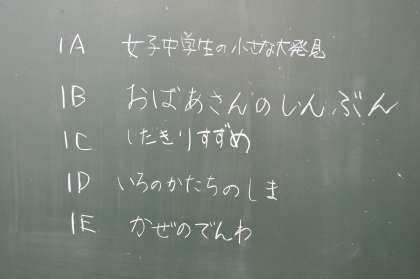 1A 女子中学生の小さな大発見
1B おばあさんのしんぶん
1C したきりすずめ
1D いろのかたちのしま
1E かぜのでんわ